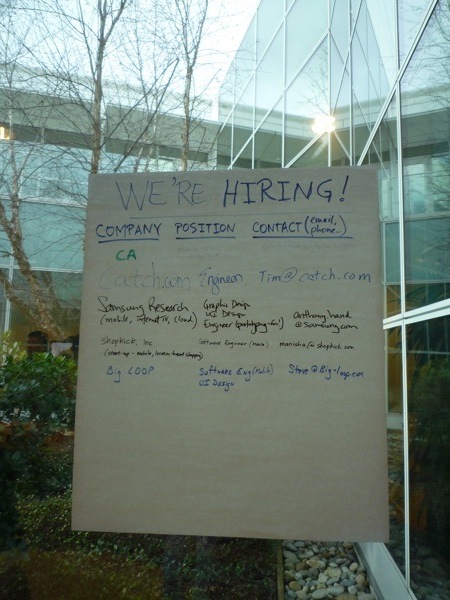 WE'RE HIRING!
COMPANY POSITION CONTACT (email, phone..)
CA
Catch.com Engineer Tim@catch.com
Samsung Research Graphic Design
UI Design
(mobile, internet TV, cloud) Engineer anthony.hand
@samsung.com
Shopkick, Inc Software Engineer (Mobile) manisha@shopkick.com
(start-up - mobile, location-based shopping)
Big LOOP Software Eng (Mobile) Steve@Big-loop.com
UI Design